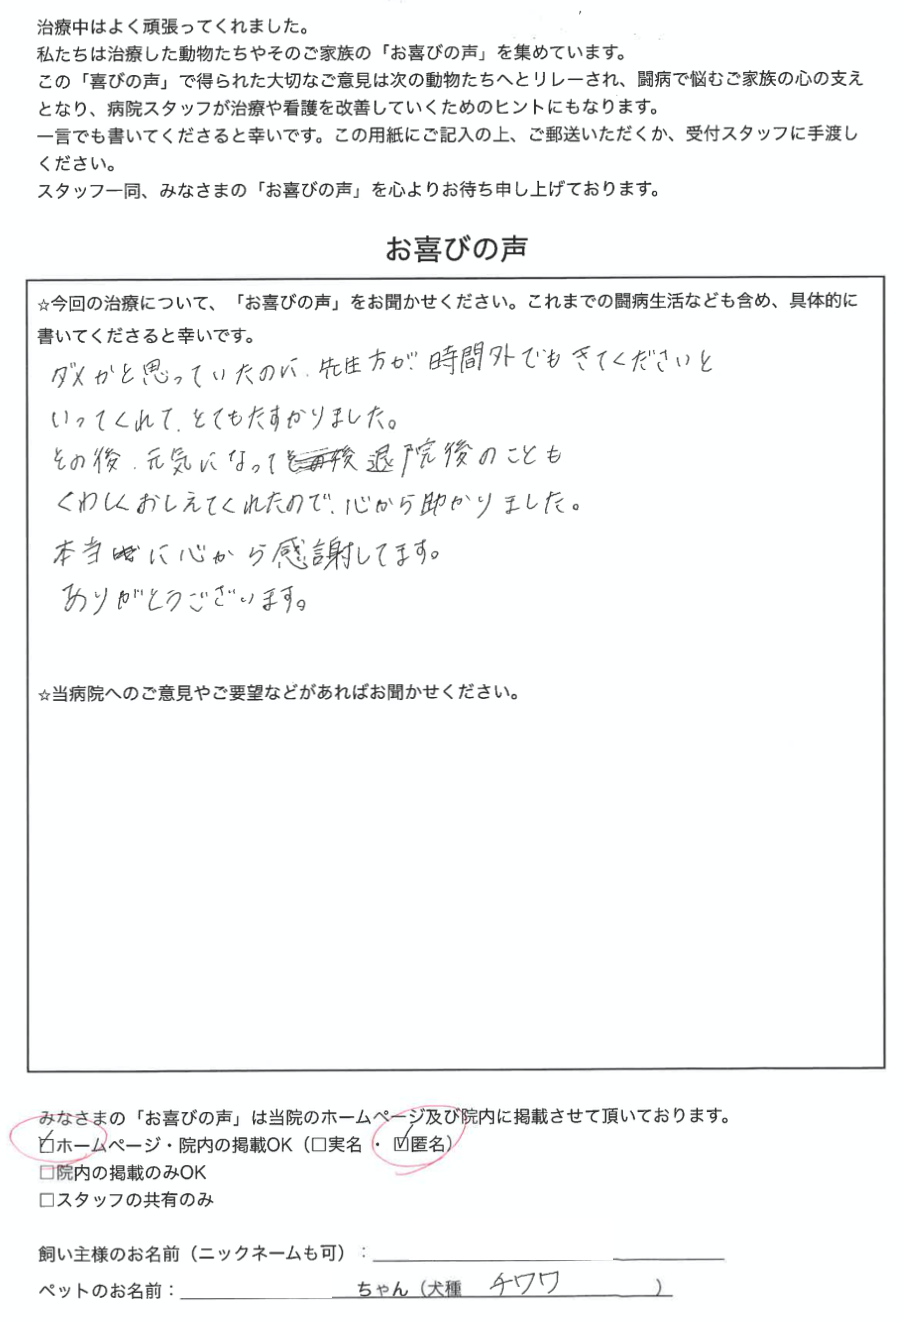 治療中はよく頑張ってくれました。
私たちは治療した動物たちやそのご家族の「お喜びの声」を集めています。
この「喜びの声」で得られた大切なご意見は次の動物たちへとリレーされ、闘病で悩むご家族の心の支え
となり、病院スタッフが治療や看護を改善していくためのヒントにもなります。
一言でも書いてくださると幸いです。この用紙にご記入の上、ご郵送いただくか、受付スタッフに手渡し
ください。
スタッフ一同、みなさまの「お喜びの声」を心よりお待ち申し上げております。
お喜びの声
☆今回の治療について、「お喜びの声」をお聞かせください。これまでの闘病生活なども含め、具体的に
書いてくださると幸いです。
ダメかと思っていたのに、先生方が、時間外でもきてくださいと
いってくれて、とてもたすかりました。
その後、元気になって退院後のことも
くわしくおしえてくれたので、心から助かりました。
本当に心から感謝してます。
ありがとうございます。
☆当病院へのご意見やご要望などがあればお聞かせください。
みなさまの「お喜びの声」は当院のホームページ及び院内に掲載させて頂いております。
☑ホームページ・院内の掲載OK（□実名 ・ ☑匿名）
□院内の掲載のみOK
□スタッフの共有のみ
飼い主様のお名前（ニックネームも可）：
ペットのお名前： ちゃん（犬種 チワワ ）